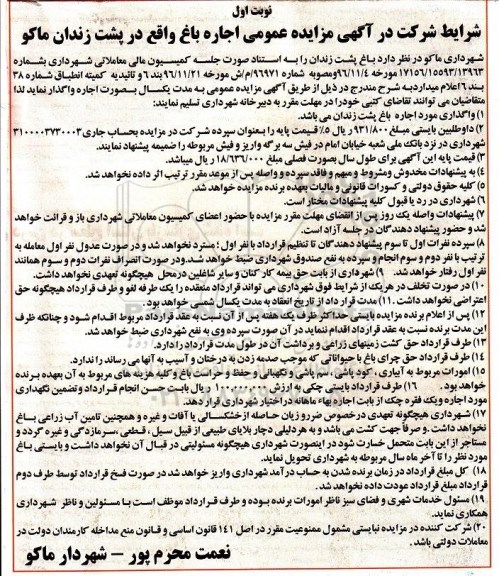 نوبت اول
شرایط شرکت در آگهی مزایده عمومی اجاره باغ واقع در پشت زندان ماکو
شهرداری ماکو در نظر دارد باغ پشت زندان را به استناد صورت جلسه کمیسیون مالی معاملاتی شهرداری بشماره
۱۷۱۵۶/۱۰۵۹۳/۱۳۹۶۳ مورخه ۹۶/۱۱/۴ ومصوبه شماره ۹۶۹۷۱/م/ش مورخه ۹۶/۱۱/۲۱ بند ۶ و تائیدیه کمیته انطباق شماره ۳۸
بند ۶ اعلام میداردبه شرح مندرج در ذیل از طریق آگهی مزایده عمومی به مدت یکسال بصورت اجاره واگذار نماید لذا
متقاضیان می توانند تقاضای کتبی خودرا در مهلت مقرر به دبیرخانه شهرداری تسلیم نمایند:
۱) واگذاری مورد اجاره باغ پشت زندان می باشد.
۲) داوطلبین بایستی مبلغ ۹۳۱/۸۰۰ ریال ۵٪ قیمت پایه را بعنوان سپرده شرکت در مزایده بحساب جاری ۳۱۰۰۰۰۳۷۳۰۰۳
شهرداری در نزد بانک ملی شعبه خیابان امام در فیش سه برگه واریز و فیش مربوطه را ضمیمه پیشنهاد نمایند.
۳) قیمت پایه این آگهی برای طول سال بصورت فصلی مبلغ ۱۸/۶۳۶/۰۰۰ ریال میباشد.
۴) به پیشنهادات مخدوش ومشروط و مبهم و فاقد سپرده و واصله پس از موعد مقرر ترتیب اثر داده نخواهد شد.
۵) کلیه حقوق دولتی و کسورات قانونی و مالیات بعهده برنده مزایده خواهد شد.
۶) شهرداری در رد یا قبول کلیه پیشنهادات مختار است.
۷) پیشنهادات واصله یک روز پس از انقضای مهلت مقرر مزایده با حضور اعضای کمیسیون معاملاتی شهرداری باز و قرائت خواهد
شد و حضور پیشنهاد دهندگان در جلسه آزاد است.
۸) سپرده نفرات اول تا سوم پیشنهاد دهندگان تا تنظیم قرارداد با نفر اول ؛ مسترد نخواهد شد و در صورت عدول نفر اول معامله به
ترتیب با نفر دوم و سوم انجام و سپرده به نفع صندوق شهرداری ضبط خواهد شد.ودر صورت انصراف نفرات دوم و سوم همانند
نفر اول رفتار خواهد شد. ۹) شهرداری از بابت حق بیمه کارکنان و سایر شاغلین درمحل هیچگونه تعهدی نخواهد داشت.
۱۰) در صورت تخلف در هر یک از شرایط فوق شهرداری می تواند قرارداد منعقده را یک طرفه لغو و طرف قرارداد هیچگونه حق
اعتراضی نخواهد داشت. ۱۱) مدت قرار داد از تاریخ انعقاد به مدت یکسال شمسی خواهد بود.
۱۲) پس از اعلام برنده مزایده بایستی حداکثر ظرف یک هفته پس از آن نسبت به عقد قرارداد مربوط اقدام شود و چنانکه ظرف
این مدت برنده نسبت به عقد قرارداد اقدام ننماید در آن صورت سپرده وی به نفع شهرداری ضبط خواهد شد.
۱۳) طرف قرارداد حق کشت زمینهای زراعی و برداشت آن در طول مدت قرارداد را دارد.
۱۴) طرف قرارداد حق چرای باغ با حیواناتی که موجب صدمه زدن به درختان و آسیب به آنها می رساند را ندارد.
۱۵) امورات مربوط به آبیاری ، کود پاشی ، سم پاشی و نگهبانی و حفظ و حراست باغ و کلیه هزینه های مربوط به آن بعهده برنده
خواهد بود. ۱۶) طرف قرارداد بایستی چکی به ارزش ۱۰۰,۰۰۰,۰۰۰ ریال بابت حسن انجام قرارداد و تضمین نگهداری
مورد اجاره و یک فقره چک از بابت اجاره بهاء ماهانه در اختیار شهرداری قرار دهد.
۱۷) شهرداری هیچگونه تعهدی در خصوص ضرر و زیان حاصله از خشکسالی یا آفات و غیره و همچنین تامین آب زراعی باغ
نخواهد داشت .و صرفاً جهت کشت می باشد و به هر دلیلی دچار بلایای طبیعی از قبیل سیل ، قحطی ،سرمازدگی و غیره گردد و
مستاجر از این بابت متحمل خسارت شود در اینصورت شهرداری هیچگونه مسئولیتی در قبال آن نخواهد داشت و بایستی باغ
مورد نظر را تا آخر ماه سال مربوطه به شهرداری تحویل نماید.
۱۸) کل مبلغ قرارداد در زمان برنده شدن به حساب درآمد شهرداری واریز خواهد شد در صورت فسخ قرارداد توسط طرف دوم
قرارداد مبلغ قرارداد عودت داده نخواهد شد.
۱۹) مسئول خدمات شهری و فضای سبز ناظر امورات برنده بوده و طرف قرارداد موظف است با مسئولین و ناظر شهرداری
همکاری نماید.
۲۰) شرکت کننده در مزایده نبایستی مشمول ممنوعیت مقرر در اصل ۱۴۱ قانون اساسی و قانون منع مداخله کارمندان دولت در
معاملات دولتی باشد.
نعمت محرم پور – شهردار ماکو